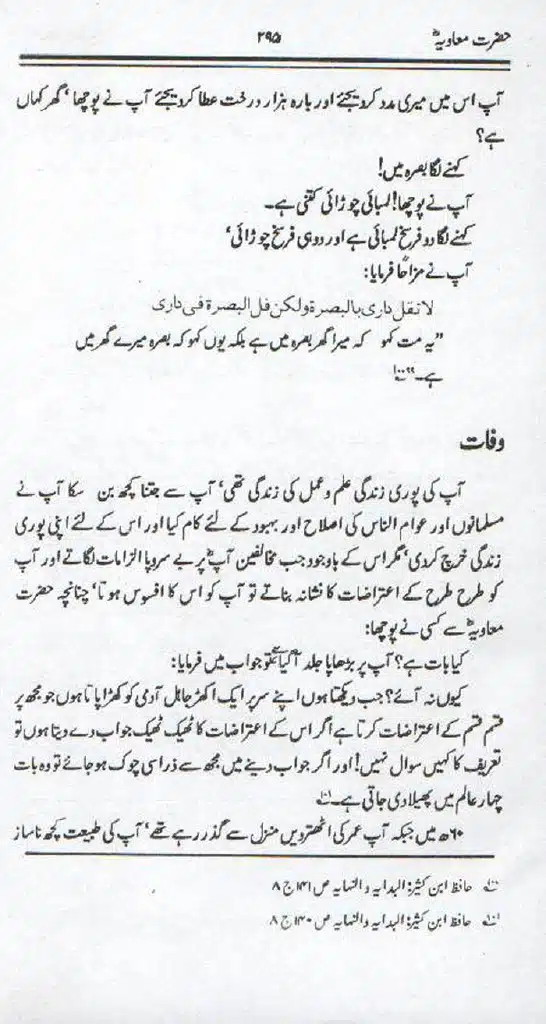 حضرت معاویہؓ
۲۹۵
آپ اس میں میری مدد کر دیجئے اور بارہ ہزار درخت عطا کر دیجئے آپ نے پوچھا‘ گھر کہاں
ہے؟
کہنے لگا بصرہ میں!
آپ نے پوچھا! لمبائی چوڑائی کتنی ہے۔
کہنے لگا دو فرسخ لمبائی ہے اور دو ہی فرسخ چوڑائی‘
آپ نے مزاحاً فرمایا:
لا تقل داری بالبصرۃ ولکن قل البصرۃ فی داری
”یہ مت کہو کہ میرا گھر بصرہ میں ہے بلکہ یوں کہو کہ بصرہ میرے گھر میں
ہے۔“ ۱۰۰
وفات
آپ کی پوری زندگی علم و عمل کی زندگی تھی‘ آپ سے جتنا کچھ بن سکا آپ نے
مسلمانوں اور عوام الناس کی اصلاح اور بہبود کے لئے کام کیا اور اس کے لئے اپنی پوری
زندگی خرچ کر دی‘ مگر اس کے باوجود جب مخالفین آپؓ پر بے سروپا الزامات لگاتے اور آپ
کو طرح طرح کے اعتراضات کا نشانہ بناتے تو آپ کو اس کا افسوس ہوتا‘ چنانچہ حضرت
معاویہؓ سے کسی نے پوچھا:
کیا بات ہے؟ آپ پر بڑھاپا جلد آ گیا تو جواب میں فرمایا:
کیوں نہ آئے؟ جب دیکھتا ہوں اپنے سر پر ایک اکھڑ جاہل آدمی کو کھڑا پاتا ہوں جو مجھ پر
قسم قسم کے اعتراضات کرتا ہے اگر اس کے اعتراضات کا ٹھیک ٹھیک جواب دے دیتا ہوں تو
تعریف کا کہیں سوال نہیں! اور اگر جواب دینے میں مجھ سے ذرا سی چوک ہو جائے تو وہ بات
چہار عالم میں پھیلا دی جاتی ہے۔ ۱۰۱
۶۰ھ میں جبکہ آپ عمر کی اٹھترویں منزل سے گذر رہے تھے‘ آپ کی طبیعت کچھ ناساز
۱۰۰ حافظ ابن کثیرؒ: البدایہ و النہایہ ص ۱۴۱ ج ۸
۱۰۱ حافظ ابن کثیرؒ: البدایہ و النہایہ ص ۱۴۰ ج ۸